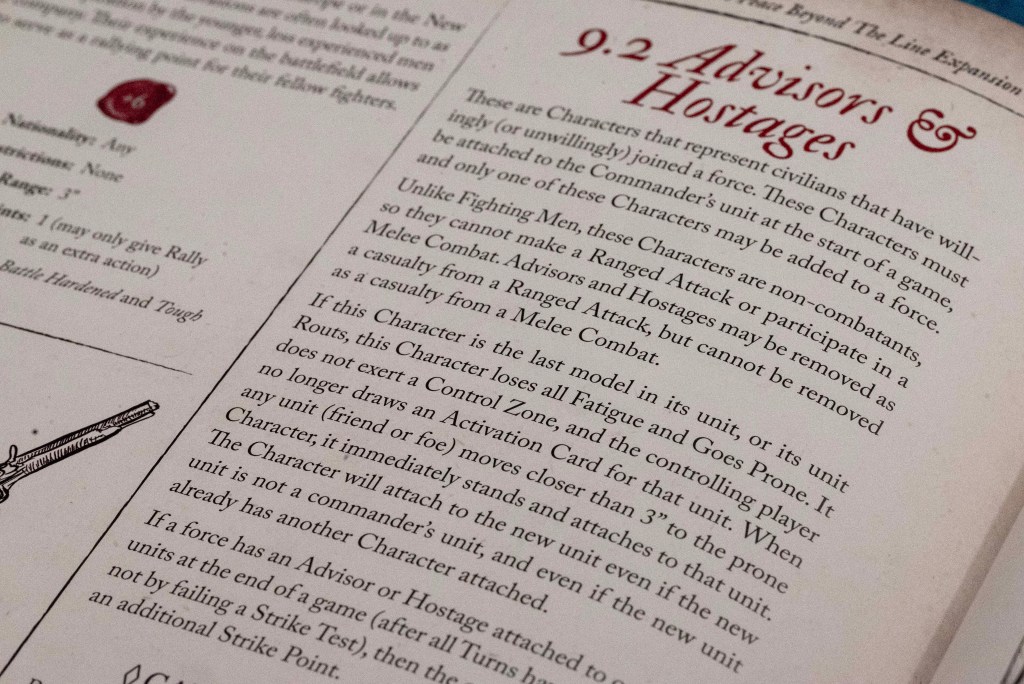 or in the New
are often looked up to as
by the younger, less experienced men
company. Their experience on the battlefield allows
serve as a rallying point for their fellow fighters.
+6
Nationality: Any
None
Range: 3"
1 (may only give Rally
as an extra action)
Battle Hardened and Tough
Peace Beyond The Line Expansion
9.2 Advisors &
Hostages
These are Characters that represent civilians that have will-
ingly (or unwillingly) joined a force. These Characters must
be attached to the Commander's unit at the start of a game,
and only one of these Characters may be added to a force.
Unlike Fighting Men, these Characters are non-combatants,
so they cannot make a Ranged Attack or participate in a
Melee Combat. Advisors and Hostages may be removed as
a casualty from a Ranged Attack, but cannot be removed
as a casualty from a Melee Combat.
If this Character is the last model in its unit, or its unit
Routs, this Character loses all Fatigue and Goes Prone. It
does not exert a Control Zone, and the controlling player
no longer draws an Activation Card for that unit. When
any unit (friend or foe) moves closer than 3" to the prone
Character, it immediately stands and attaches to that unit.
The Character will attach to the new unit even if the new
unit is not a commander's unit, and even if the new unit
already has another Character attached.
If a force has an Advisor or Hostage attached to
units at the end of a game (after all Turns
not by failing a Strike Test), then the
an additional Strike Point.